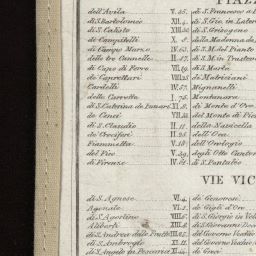 PIAZZ
dell'Avila V.35. di S. Francesco a
di S. Bartolomeo XII.4. di S. Gio. in Later
di S. Calisto XIII.30 di S. Grisogono
de Campitelli X.8 della Madonna de
di Campo Marzo IV.63. di S. M. del Pianto
delle tre Cannelle II.47. di S. M. in Trastev
di Capo di Ferro VII.49. di S. Marta
de Caprettari VIII.25 de Matriciani
Cardelli IV.57. Mignanelli
delle Carrette I.75. Montanara
di S. Caterina de Funari XI. di Monte d'Oro
de Cenci VII. di Monte di Pie
di S. Claudio II.11 della Navicella
de Crociferi II.25 dell'Oca
Fiammetta V.10 dell'Orologio
del Fico V.39. degli Otto Canto
di Firenze IV.81 di S. Pantaleo
VIE VIC
di S. Agnese VI.4. de Genovesi
Agonale VI.5. de Gigli d'Oro
di S. Agostino VIII.6. di S. Giorgio in Vel
Aliberti di S. Giovanni Dec
di S. Andrea delle Fratte III. del Governo Vecchio
di S. Ambrogio XI. del Governo Vecchio
di S. Angelo in Pescaria XI. de Greci